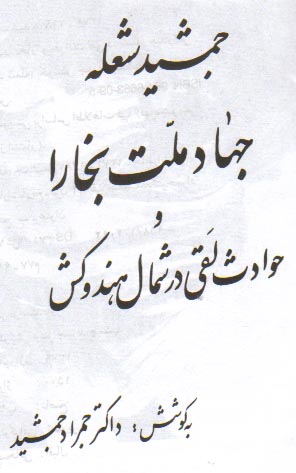 جمشید شعله
جهاد ملّت بخارا
و
حوادث لَقَی در شمال هندوکش
به کوشش: داکتر حمراد جمشید